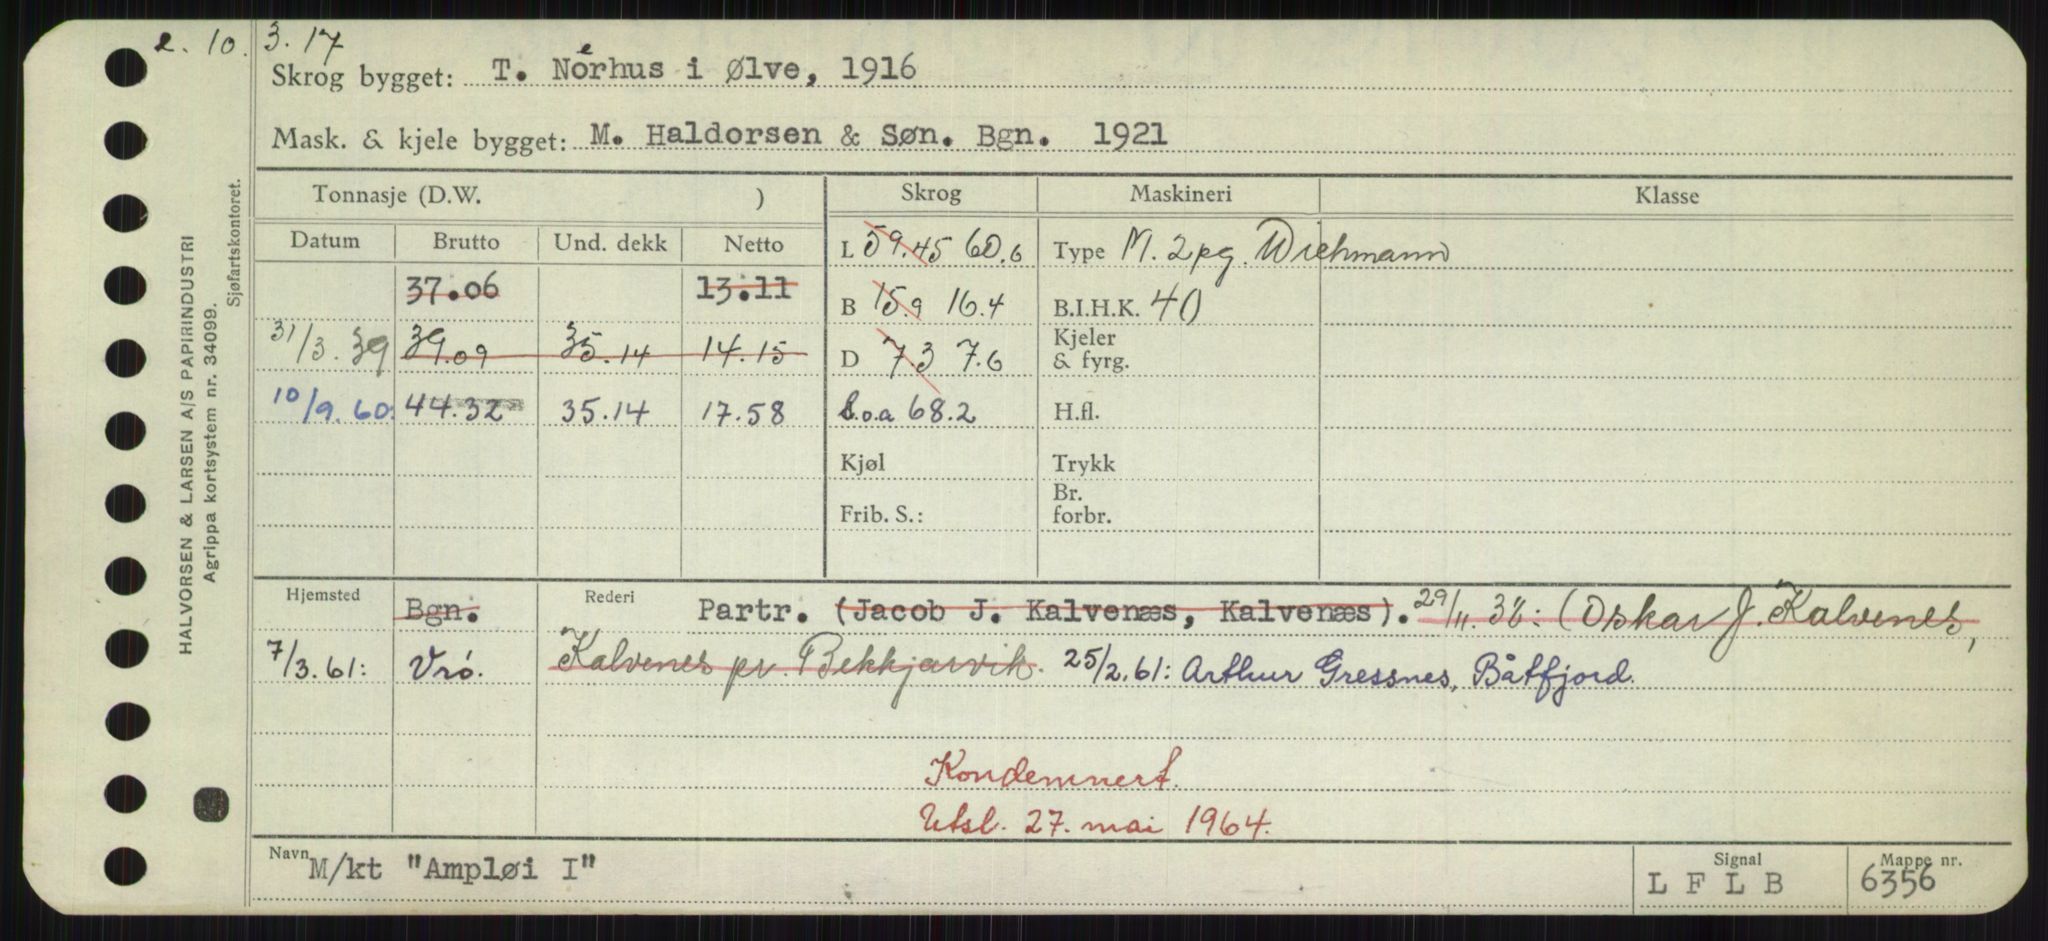 2. 10. 3. 17
Skrog bygget: T. Nerhus i Ølve, 1916
Mask. & kjele bygget: M. Haldorsen & Søn. Bgn. 1921
Tonnasje (D.W. ) Skrog Maskineri Klasse
Datum Brutto Und. dekk Netto L 59.45 60.6 Type M. 2 pg. Wichmann
37.06 13.11 B 15.9 16.4 B.I.H.K. 40
31/3. 39 39.09 35.14 14.15 D 7.3 7.6 Kjeler & fyrg.
10/9. 60: 44.32 35.14 17.58 L.o.a 68.2 H.fl.
Kjøl Trykk
Frib. S.: Br. forbr.
Hjemsted Bgn. Rederi Partr. (Jacob J. Kalvenæs, Kalvenæs). 29/11. 38: (Oskar J. Kalvenes,
7/3. 61: Vrö. Kalvenes pr. Bekkjarvik. 25/2. 61: Arthur Gressnes, Båtfjord.
Kondemnert.
Utsl. 27. mai 1964.
Navn M/kt "Ampløi I" Signal L F L B Mappe nr. 6356
HALVORSEN & LARSEN A/S PAPIRINDUSTRI
Agrippa kortsystem nr. 34099.
Sjøfartskontoret.